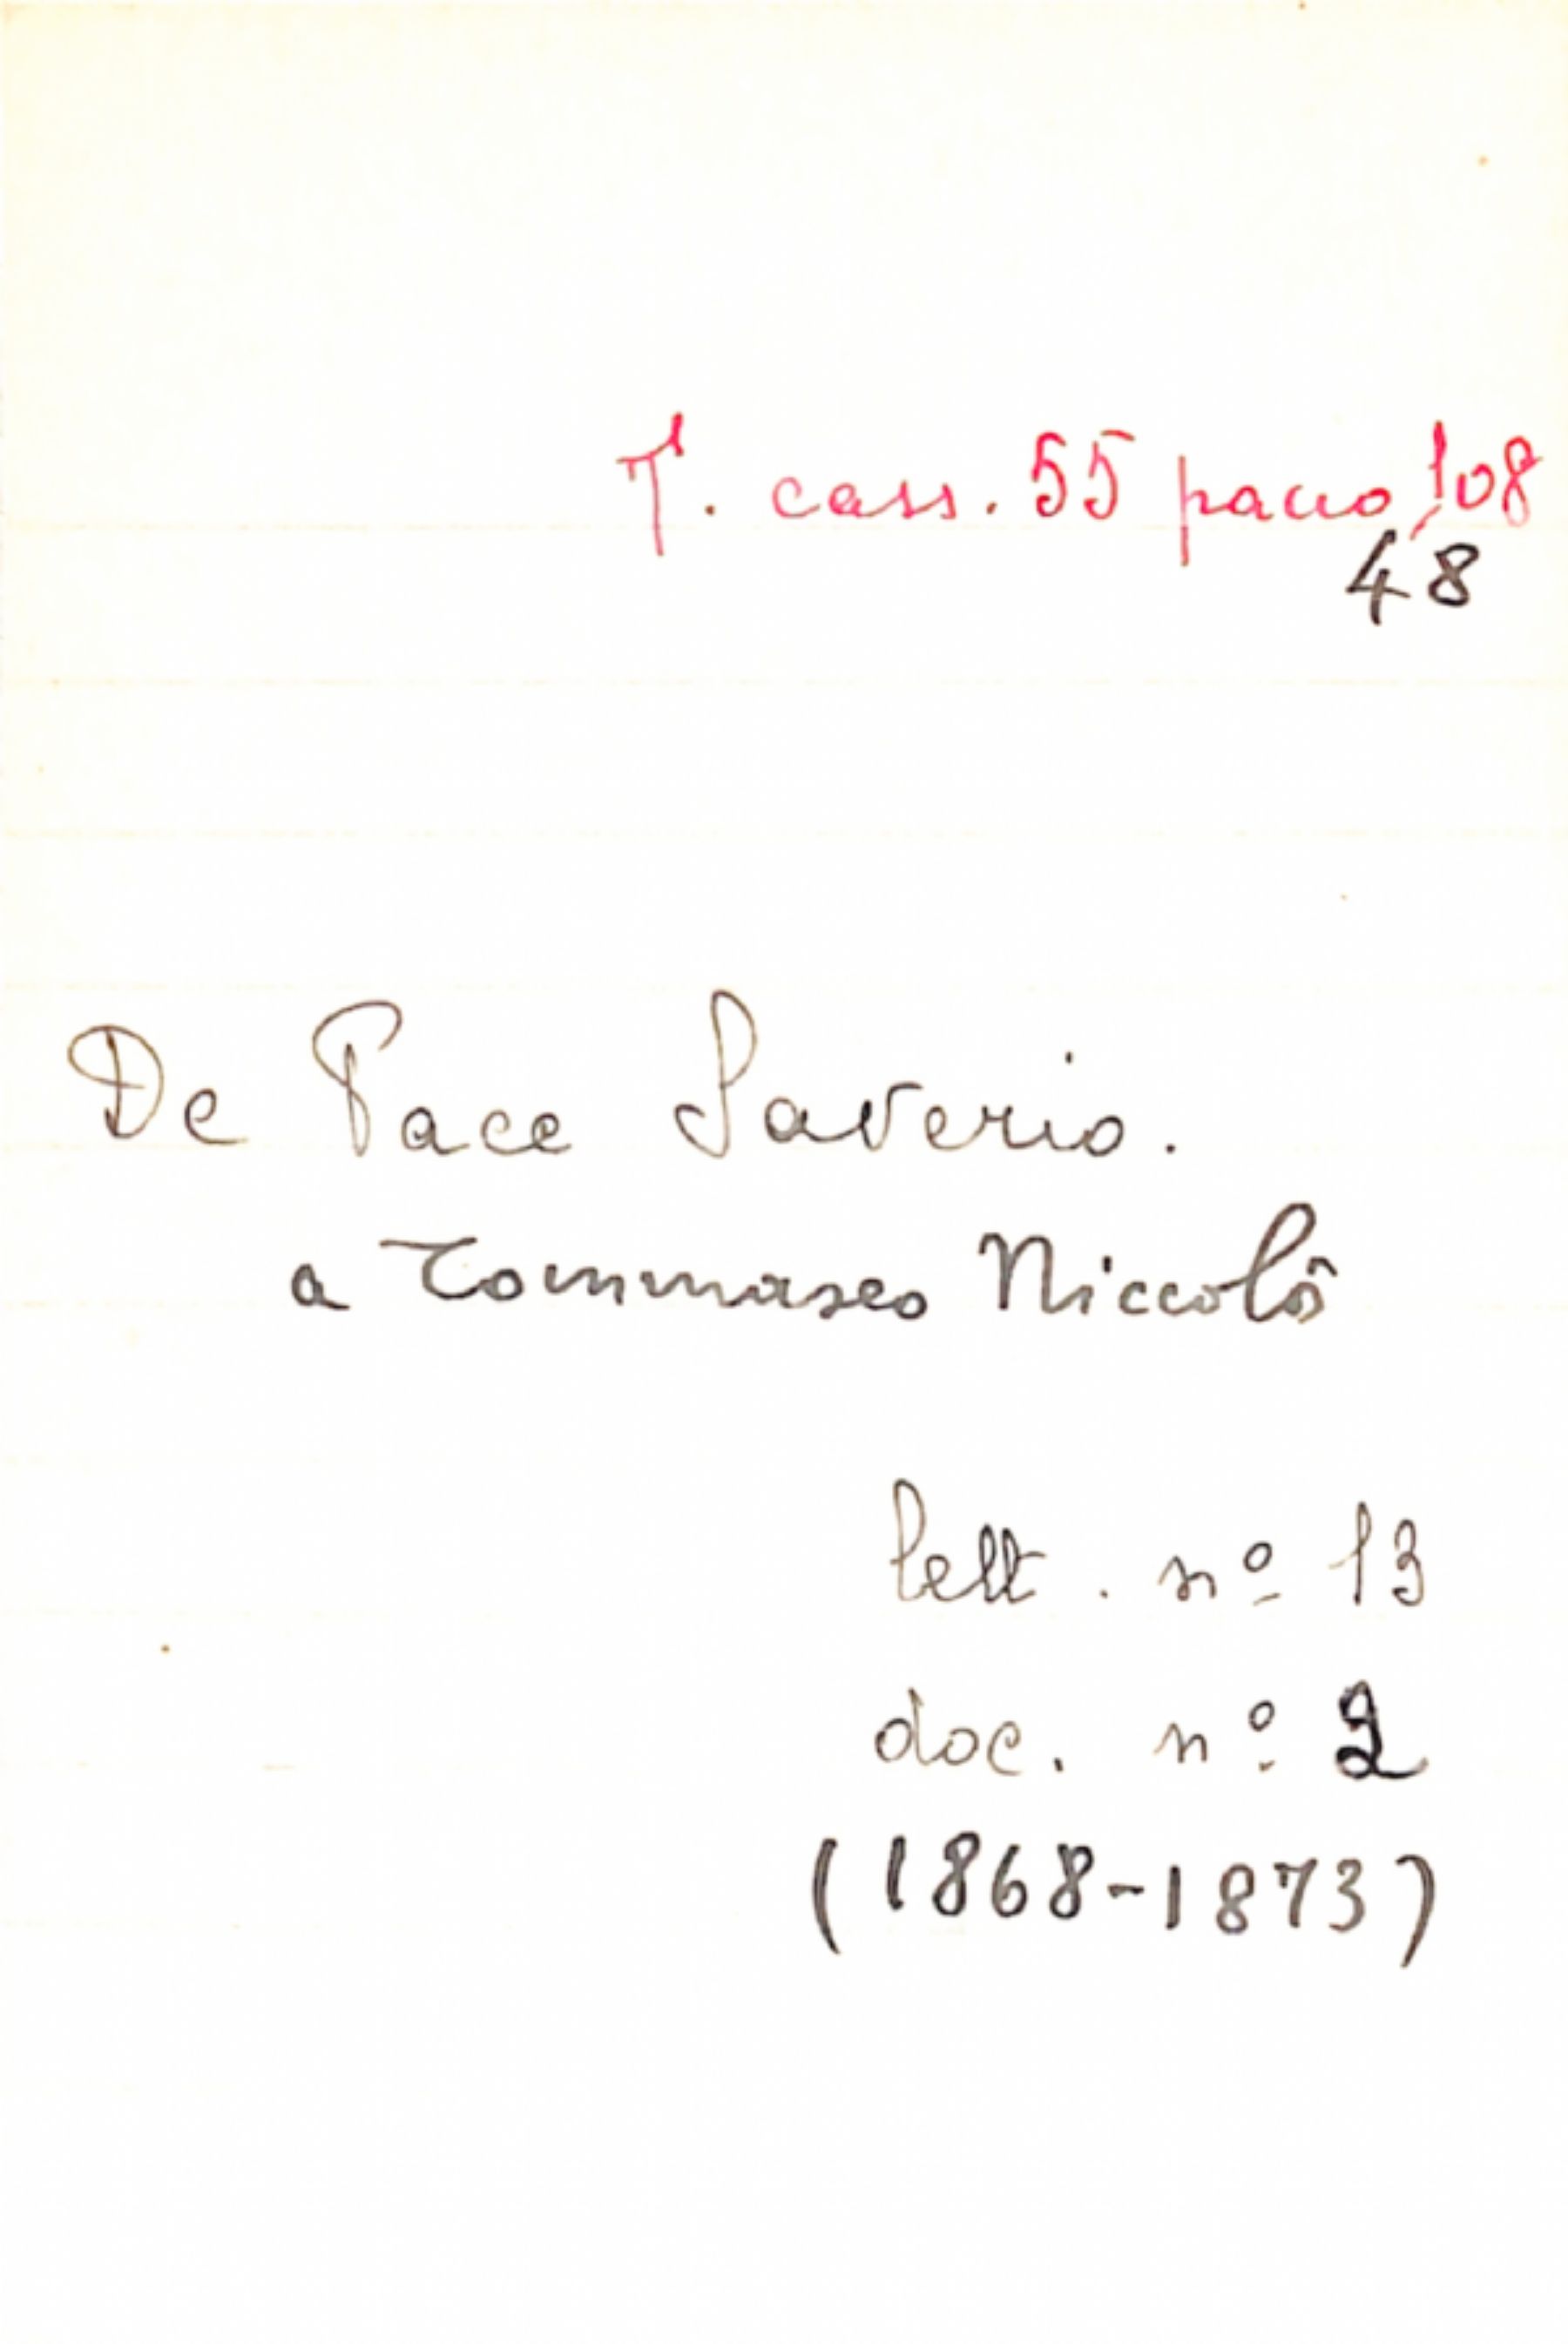 T. cass. 55 pacco, 108
48
De Pace Saverio.
a Tommaseo Niccolò
lett. nº 13
doc. nº 2
(1868-1873)